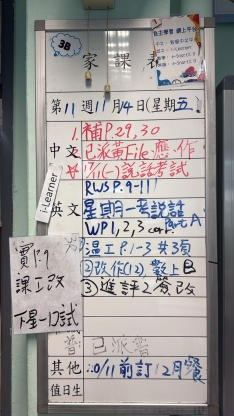 3B
家課表
自主學習 網上平台
第11週11月14日(星期五)
中文
1. 補P.29,30
2. 已派黃File應.作
11/11(一)說話考試
i-Learner
英文
RWS P.9-111
星期一考說話
WP1,2,3 corr. Part A
數
①溫工P.1-3 #3項
②改作(12) 數上B
③進評2簽改
實門
課工改
下星一口試
普 已派書
其他 20/11前訂12月餐
值日生